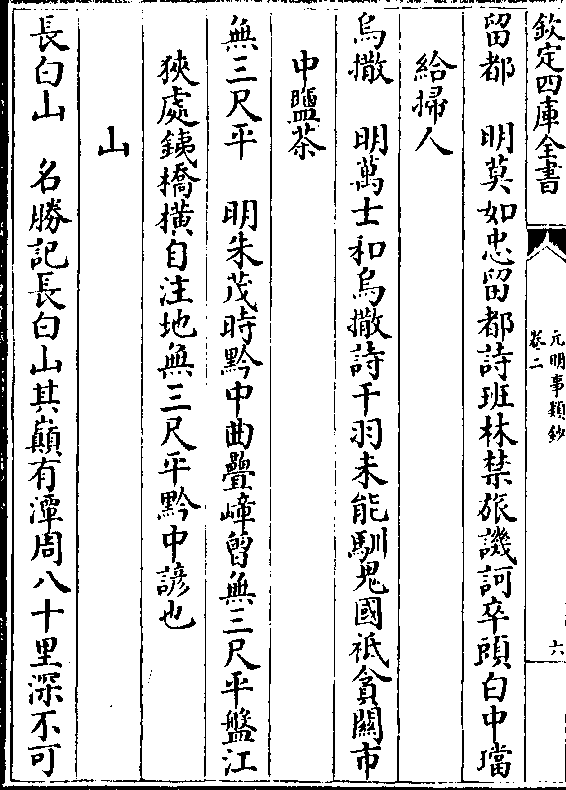 欽定四庫全書
元明事類鈔
卷二
六
留都 明莫如忠留都詩班林禁旅譏訶卒頭白中璫
給掃人
烏撒 明萬士和烏撒詩干羽未能馴鬼國祗貪關市
中鹽茶
無三尺平 明朱茂時黔中曲疊嶂曾無三尺平盤江
狹處銕橋橫自注地無三尺平黔中諺也
山
長白山 名勝記長白山其巔有潭周八十里深不可